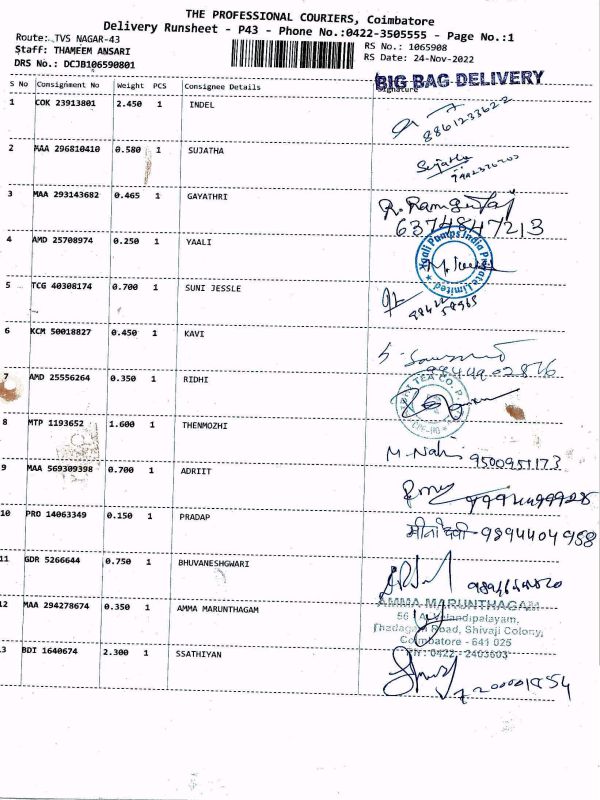 THE PROFESSIONAL COURIERS, Coimbatore
Delivery Runsheet - P43 - Phone No.:0422-3505555 - Page No.:1
Route: TVS NAGAR-43
RS No.: 1065908
Staff: THAMEEM ANSARI
RS Date: 24-Nov-2022
DRS No.: DCJB106590801
BIG BAG DELIVERY
S No Consignment No Weight PCS Consignee Details Signature
1 COK 23913801 2.450 1 INDEL
8861233622
2 MAA 296810410 0.580 1 SUJATHA
Sujatha
3 MAA 293143682 0.465 1 GAYATHRI
6374847213
4 AMD 25708974 0.250 1 YAALI
Pumps India Private Limited
5 TCG 40308174 0.700 1 SUNI JESSLE
6 KCM 50018827 0.450 1 KAVI
9944902876
7 AMD 25556264 0.350 1 RIDHI
TEA CO. P.
8 MTP 1193652 1.600 1 THENMOZHI
9500951173
9 MAA 569309398 0.700 1 ADRIIT
10 PRO 14063349 0.150 1 PRADAP
मीना देवी - 9894404958
11 GDR 5266644 0.750 1 BHUVANESHGWARI
12 MAA 294278674 0.350 1 AMMA MARUNTHAGAM
AMMA MARUNTHAGAM
Road, Shivaji Colony,
Coimbatore - 641 025
PH : 0422 - 2403603
3 BDI 1640674 2.300 1 SSATHIYAN